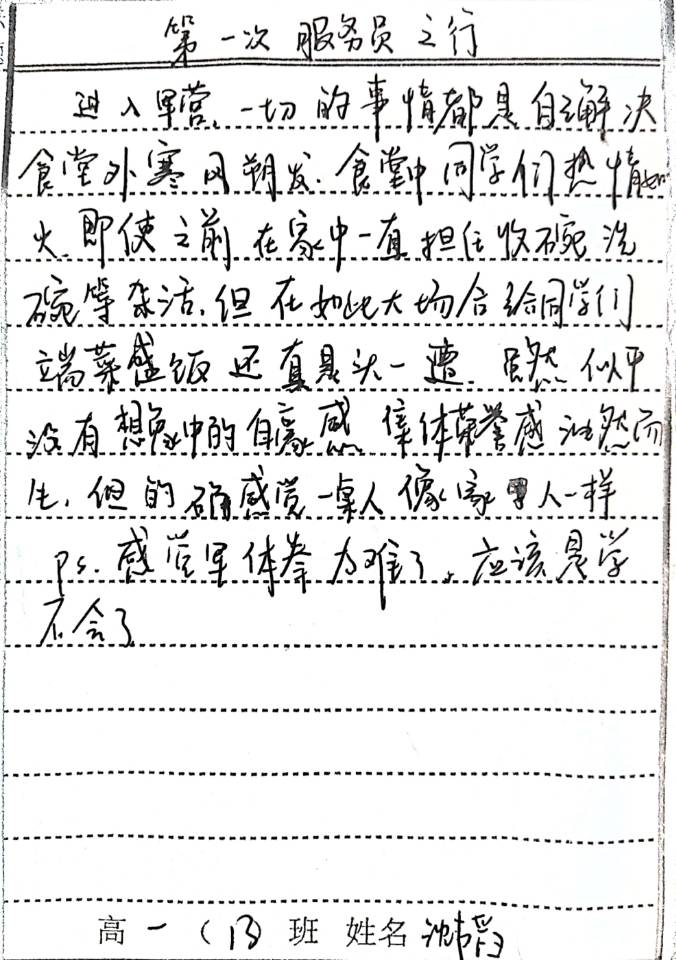 第一次服务员之行
进入军营,一切的事情都是自己解决
食堂外寒风朔发,食堂中同学们热情如
火,即使之前在家中一直担任收碗洗
碗等杂活,但在如此大场合给同学们
端菜盛饭还真是头一遭.虽然似乎
没有想象中的自豪感,集体荣誉感油然而
生,但的确感觉一桌人像家人一样
Ps.感觉军体拳为难了。应该是学
不会了
高一(13)班 姓名